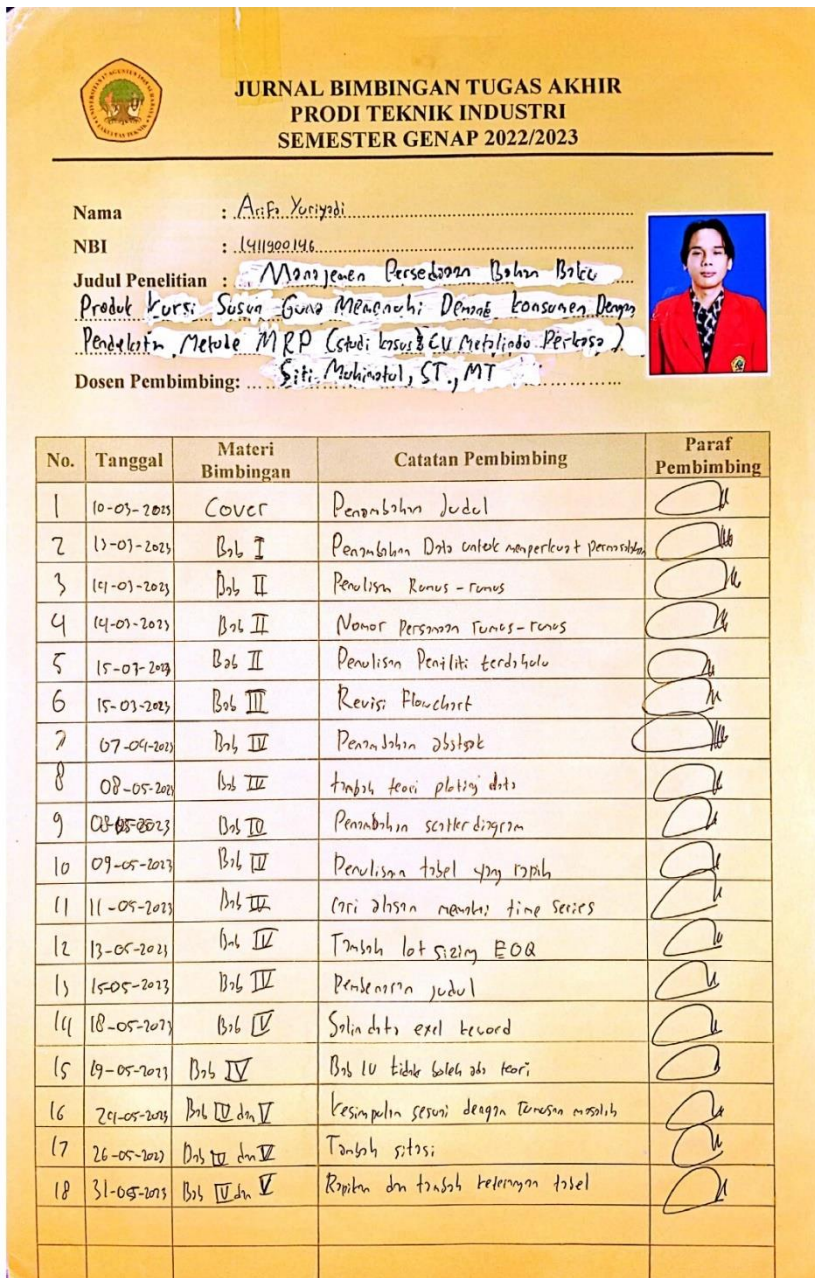 JURNAL BIMBINGAN TUGAS AKHIR
PRODI TEKNIK INDUSTRI
SEMESTER GENAP 2022/2023
Nama : Arifa Yuriyadi
NBI : 1411900146
Judul Penelitian : Manajemen Persediaan Bahan Baku
Produk Kursi Susun Guna Memenuhi Demand Konsumen Dengan
Pendekatan Metode MRP (studi kasus CV Metalindo Perkasa)
Dosen Pembimbing: Siti Muhimatul, ST., MT
No. Tanggal Materi Bimbingan Catatan Pembimbing Paraf Pembimbing
1 10-03-2023 Cover Penambahan Judul
2 13-03-2023 Bab I Penambahan Data untuk memperkuat permasalahan
3 14-03-2023 Bab II Penulisan Rumus-rumus
4 14-03-2023 Bab II Nomor Persamaan rumus-rumus
5 15-03-2023 Bab II Penulisan Peniliti terdahulu
6 15-03-2023 Bab III Revisi Flowchart
7 07-04-2023 Bab IV Penambahan abstrak
8 08-05-2023 Bab IV tambah teori ploting data
9 08-05-2023 Bab IV Penambahan scatter diagram
10 09-05-2023 Bab IV Penulisan tabel yang rapih
11 11-05-2023 Bab IV Cari alasan memakai time series
12 13-05-2023 Bab IV Tambah lot sizing EOQ
13 15-05-2023 Bab IV Pembenaran judul
14 18-05-2023 Bab IV Salin data exel keword
15 19-05-2023 Bab IV Bab IV tidak boleh ada teori
16 24-05-2023 Bab IV dan V kesimpulan sesuai dengan rumusan masalah
17 26-05-2023 Bab IV dan V Tambah sitasi
18 31-05-2023 Bab IV dan V Rapikan dan tambah keterangan tabel